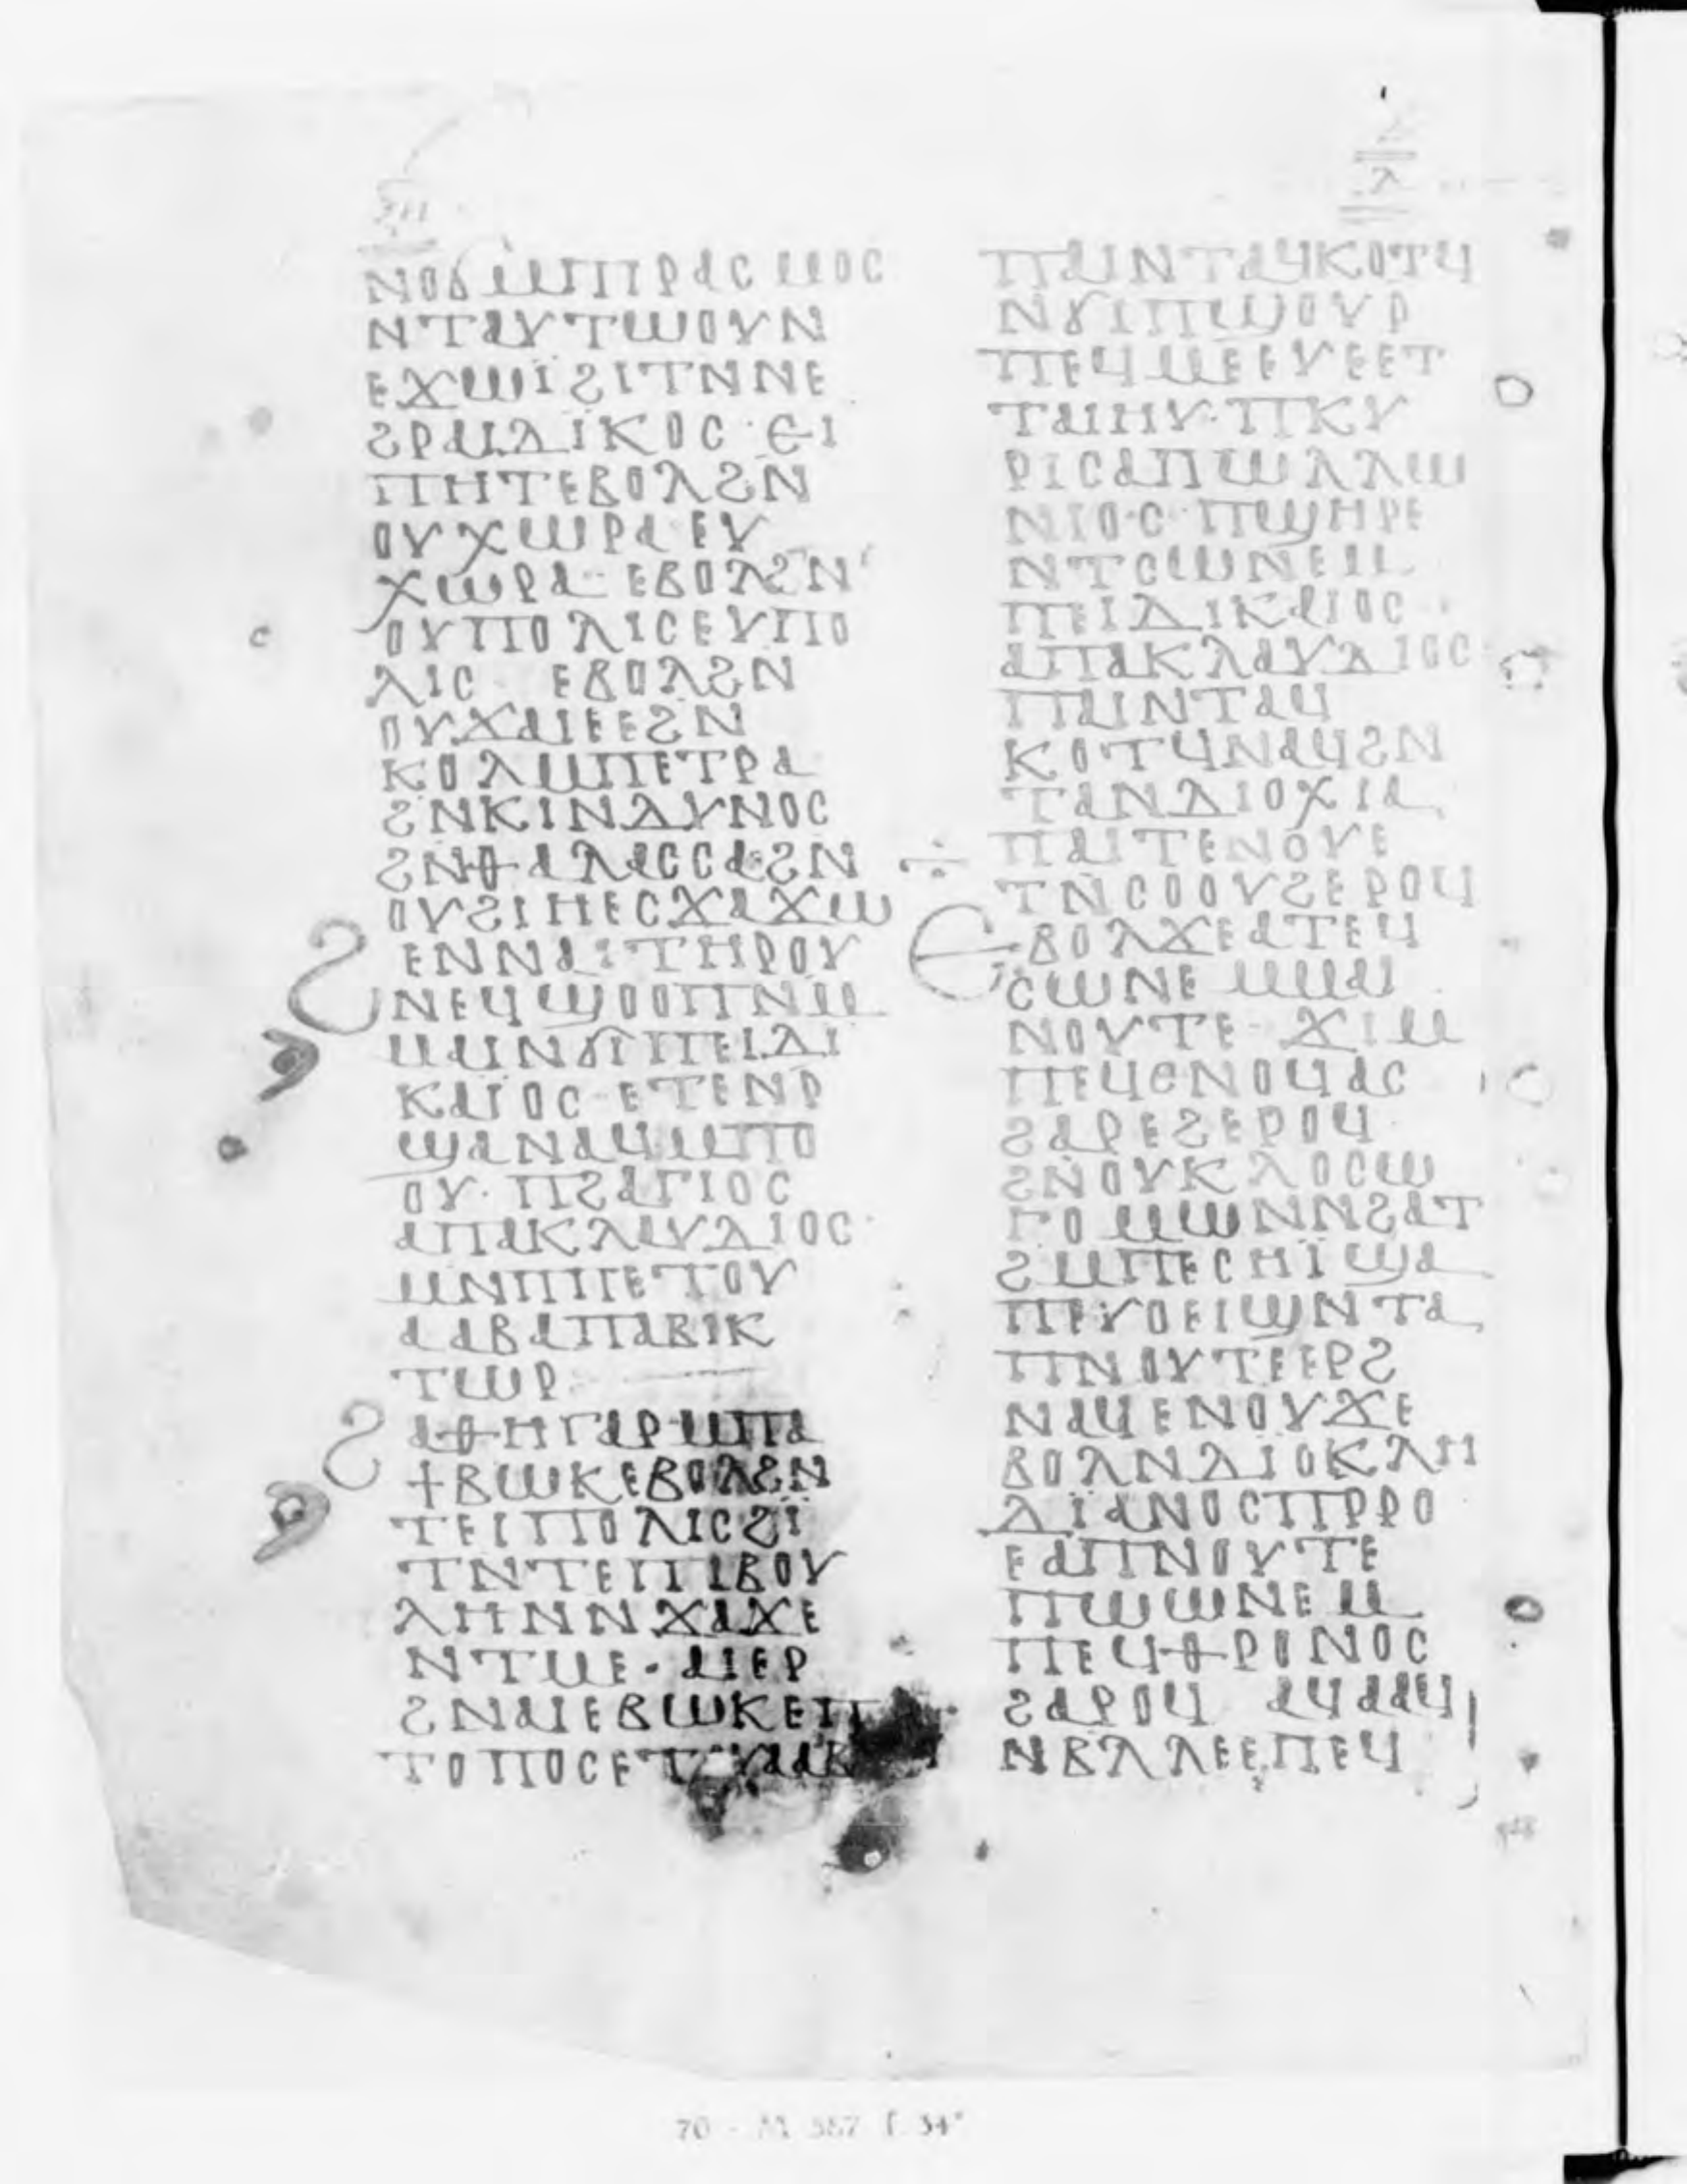 ⲛⲟϭⲙⲡⲓⲣⲁⲥⲙⲟⲥ
ⲛⲧⲁⲩⲧⲱⲟⲩⲛ
ⲉϫⲱⲓ̈ϩⲓⲧⲛⲛⲉ
ϩⲣⲁⲓⲇⲓⲕⲟⲥ·ⲉⲓ
ⲡⲏⲧⲉⲃⲟⲗϩⲛ
ⲟⲩⲭⲱⲣⲁⲉⲩ
ⲭⲱⲣⲁ· ⲉⲃⲟⲗϩⲛ
ⲟⲩⲡⲟⲗⲓⲥⲉⲩⲡⲟ
ⲗⲓⲥ ⲉⲃⲟⲗϩⲛ
ⲟⲩϫⲁⲓⲉⲉϩⲛ
ⲕⲟⲗⲙⲡⲉⲧⲣⲁ
ϩⲛⲕⲓⲛⲇⲩⲛⲟⲥ
ϩⲛⲑⲁⲗⲁⲥⲥⲁϩⲛ
ⲟⲩϩⲓⲏⲉⲥϫⲁϫⲱ
ϩⲉⲛⲛⲁⲓ̈ⲧⲏⲣⲟⲩ
ⲛⲉϥϣⲟⲟⲡⲛⲙ
ⲙⲁⲓⲛϭⲓⲡⲉⲓⲇⲓ
ⲕⲁⲓⲟⲥ·ⲉⲧⲉⲛⲣ
ϣⲁⲛⲁϥⲙⲡⲟ
ⲟⲩ·ⲡϩⲁⲅⲓⲟⲥ
ⲁⲡⲁⲕⲗⲁⲩⲇⲓⲟⲥ·
ⲙⲛⲡⲡⲉⲧⲟⲩ
ⲁⲁⲃⲁⲡⲁⲃⲓⲕ
ⲧⲱⲣ
ϩⲁⲑⲏⲅⲁⲣⲙⲡⲁ
ϯⲃⲱⲕⲉⲃⲟⲗϩⲛ
ⲧⲉⲓⲡⲟⲗⲓⲥϩⲓ̈
ⲧⲛⲧⲉⲡⲓⲃⲟⲩ
ⲗⲏⲛⲛϫⲁϫⲉ
ⲛⲧⲙⲉ·ⲁⲓⲉⲣ
ϩⲛⲁⲓⲉⲃⲱⲕⲉⲡ
ⲧⲟⲡⲟⲥⲉⲧⲟⲩⲁⲁⲃ
ⲡⲁⲓⲛⲧⲁϥⲕⲟⲧϥ
ⲛϭⲓⲡϣⲟⲩⲣ
ⲡⲉϥⲙⲉⲉⲩⲉⲉⲧ
ⲧⲁⲓⲏⲩ·ⲡⲕⲩ
ⲣⲓⲥⲁⲡⲱⲗⲗⲱ
ⲛⲓⲟⲥ·ⲡϣⲏⲣⲉ
ⲛⲧⲥⲱⲛⲉⲙ
ⲡⲉⲓⲇⲓⲕⲁⲓⲟⲥ
ⲁⲡⲁⲕⲗⲁⲩⲇⲓⲟⲥ
ⲡⲁⲓⲛⲧⲁϥ
ⲕⲟⲧϥⲛⲁϥϩⲛ
ⲧⲁⲛⲇⲓⲟⲭⲓⲁ
ⲡⲁⲓⲧⲉⲛⲟⲩⲉ
ⲧⲛⲥⲟⲟⲩϩⲉⲣⲟϥ
ⲉⲃⲟⲗϫⲉⲁⲧⲉϥ
ⲥⲱⲛⲉ ⲙⲙⲁⲓ
ⲛⲟⲩⲧⲉ· ϫⲓⲙ
ⲡⲉϥⲥⲛⲟϥⲁⲥ
ϩⲁⲣⲉϩⲉⲣⲟϥ
ϩⲛⲟⲩⲕⲗⲟⲥⲱ
ⲅⲟⲙⲱⲛⲛϩⲁⲧ
ϩⲙⲡⲉⲥⲏⲓ̈ϣⲁ
ⲡⲉⲩⲟⲉⲓϣⲛⲧⲁ
ⲡⲛⲟⲩⲧⲉⲉⲣϩ
ⲛⲁϥⲉⲛⲟⲩϫⲉ
ⲃⲟⲗⲛⲇⲓⲟⲕⲗⲏ
ⲇⲓ̈ⲁⲛⲟⲥⲡⲣⲣⲟ
ⲉⲁⲡⲛⲟⲩⲧⲉ
ⲡⲱⲱⲛⲉⲙ
ⲡⲉϥⲑⲣⲟⲛⲟⲥ
ϩⲁⲣⲟϥ ⲁϥⲁⲁϥ
ⲛⲃⲗⲗⲉⲉⲡⲉϥ